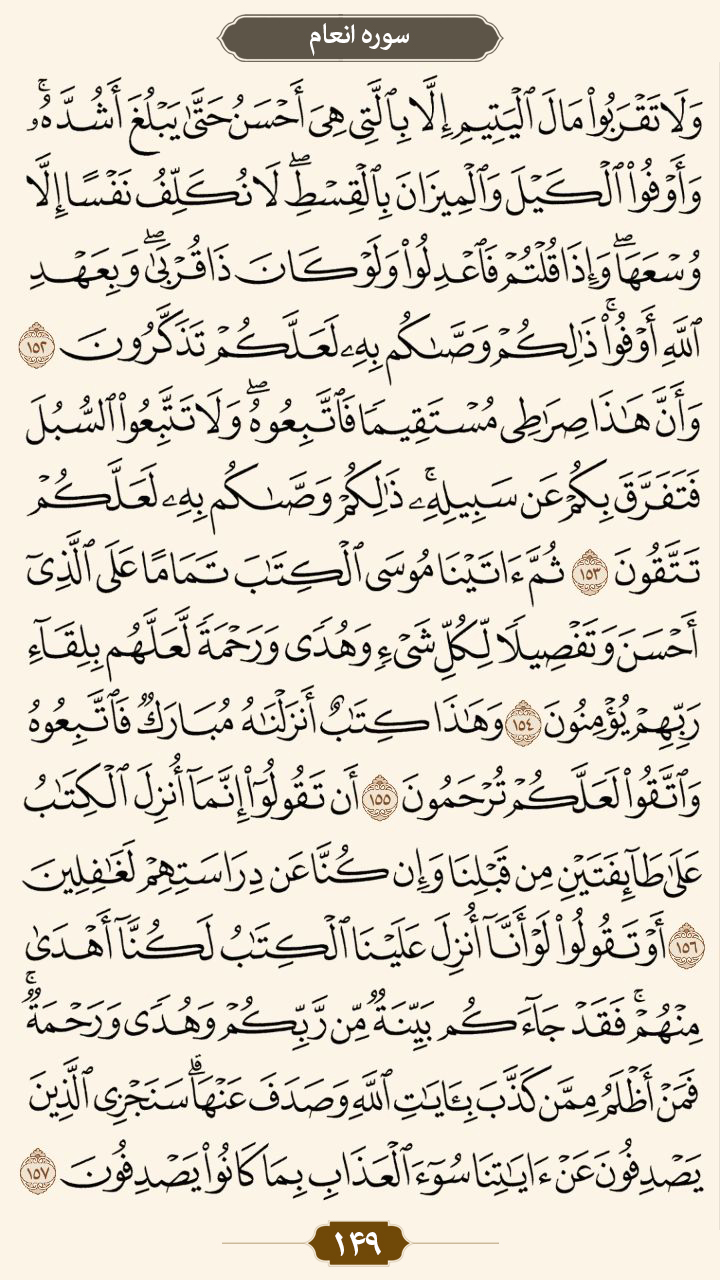 سوره انعام
وَلَا تَقْرَبُوا۟ مَالَ ٱلْيَتِيمِ إِلَّا بِٱلَّتِى هِىَ أَحْسَنُ حَتَّىٰ يَبْلُغَ أَشُدَّهُۥۚ
وَأَوْفُوا۟ ٱلْكَيْلَ وَٱلْمِيزَانَ بِٱلْقِسْطِۖ لَا نُكَلِّفُ نَفْسًا إِلَّا
وُسْعَهَاۖ وَإِذَا قُلْتُمْ فَٱعْدِلُوا۟ وَلَوْ كَانَ ذَا قُرْبَىٰۖ وَبِعَهْدِ
ٱللَّهِ أَوْفُوا۟ۚ ذَٰلِكُمْ وَصَّىٰكُم بِهِۦ لَعَلَّكُمْ تَذَكَّرُونَ ١٥٢
وَأَنَّ هَٰذَا صِرَٰطِى مُسْتَقِيمًا فَٱتَّبِعُوهُۖ وَلَا تَتَّبِعُوا۟ ٱلسُّبُلَ
فَتَفَرَّقَ بِكُمْ عَن سَبِيلِهِۦۚ ذَٰلِكُمْ وَصَّىٰكُم بِهِۦ لَعَلَّكُمْ
تَتَّقُونَ ١٥٣ ثُمَّ ءَاتَيْنَا مُوسَى ٱلْكِتَٰبَ تَمَامًا عَلَى ٱلَّذِىٓ
أَحْسَنَ وَتَفْصِيلًا لِّكُلِّ شَىْءٍ وَهُدًى وَرَحْمَةً لَّعَلَّهُم بِلِقَآءِ
رَبِّهِمْ يُؤْمِنُونَ ١٥٤ وَهَٰذَا كِتَٰبٌ أَنزَلْنَٰهُ مُبَارَكٌ فَٱتَّبِعُوهُ
وَٱتَّقُوا۟ لَعَلَّكُمْ تُرْحَمُونَ ١٥٥ أَن تَقُولُوٓا۟ إِنَّمَآ أُنزِلَ ٱلْكِتَٰبُ
عَلَىٰ طَآئِفَتَيْنِ مِن قَبْلِنَا وَإِن كُنَّا عَن دِرَاسَتِهِمْ لَغَٰفِلِينَ
١٥٦ أَوْ تَقُولُوا۟ لَوْ أَنَّآ أُنزِلَ عَلَيْنَا ٱلْكِتَٰبُ لَكُنَّآ أَهْدَىٰ
مِنْهُمْۚ فَقَدْ جَآءَكُم بَيِّنَةٌ مِّن رَّبِّكُمْ وَهُدًى وَرَحْمَةٌۚ
فَمَنْ أَظْلَمُ مِمَّن كَذَّبَ بِـَٔايَٰتِ ٱللَّهِ وَصَدَفَ عَنْهَاۗ سَنَجْزِى ٱلَّذِينَ
يَصْدِفُونَ عَنْ ءَايَٰتِنَا سُوٓءَ ٱلْعَذَابِ بِمَا كَانُوا۟ يَصْدِفُونَ ١٥٧
۱۴۹